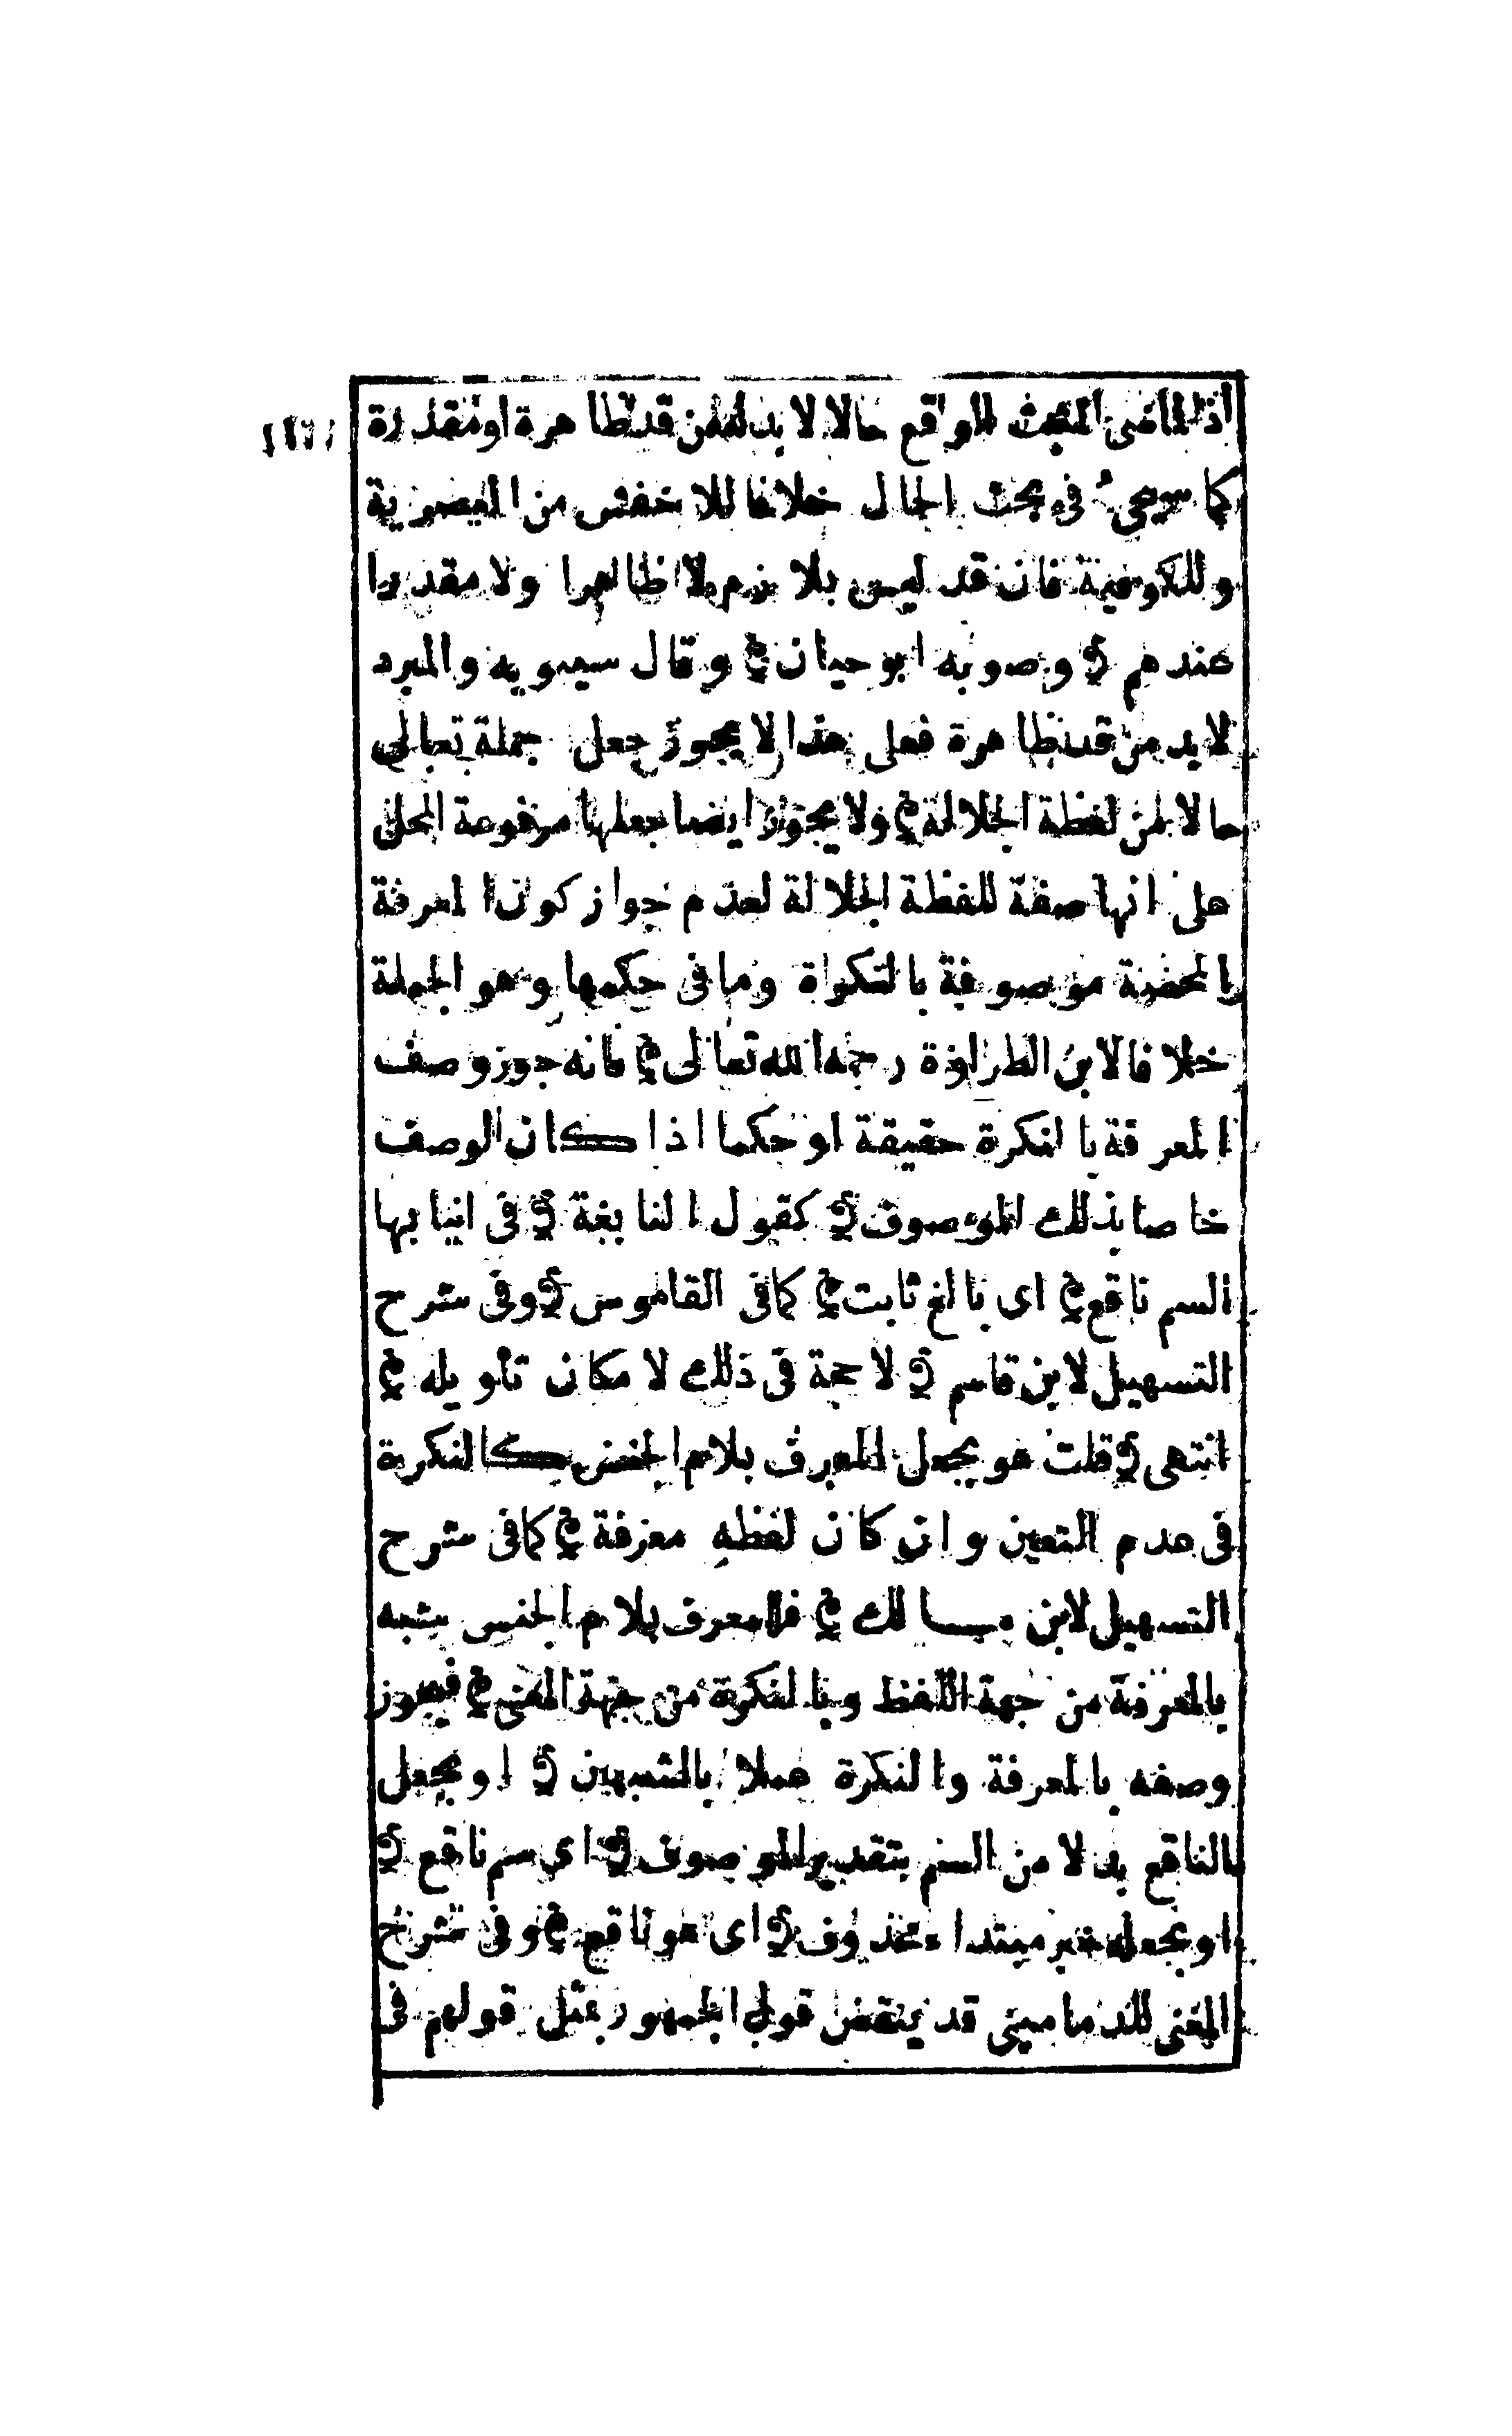 اذ الماضى المثبت الواقع حالا لا بد له من قد ظاهرة او مقدرة
كما سيجئ فى بحث الحال خلافا للاخفش من البصرية
وللكوفية فان قد ليس بلازم لا ظاهرا ولا مقدرا
عندهم وصوبه ابو حيان وقال سيبويه والمبرد
لا بد من قد ظاهرة فعلى هذا لا يجوز جعل جملة تعالى
حالا من لفظة الجلالة ولا يجوز ايضا جعلها مرفوعة المحل
على انها صفة للفظة الجلالة لعدم جواز كون المعرفة
المحضة موصوفة بالنكرة وما فى حكمها وهو الجملة
خلافا لابن الطراوة رحمه الله تعالى فانه جوز وصف
المعرفة بالنكرة حقيقة او حكما اذا كان الوصف
خاصا بذلك الموصوف كقول النابغة فى انيابها
السم ناقع اى بالغ ثابت كما فى القاموس وفى شرح
التسهيل لابن قاسم لا حجة فى ذلك لامكان تأويله
انتهى قلت هو يجعل المعرف بلام الجنس كالنكرة
فى عدم التعين وان كان لفظه معرفة كما فى شرح
التسهيل لابن مالك فالمعرف بلام الجنس يشبه
بالمعرفة من جهة اللفظ وبالنكرة من جهة المعنى فيجوز
وصفه بالمعرفة والنكرة عملا بالشبهين او يجعل
الناقع بدلا من السم بتقدير الموصوف اي سم ناقع
او بجعله خبر مبتداء محذوف اى هو ناقع وفى شرح
المغنى للدمامينى قد ينتقض قول الجمهور بمثل قولهم فى